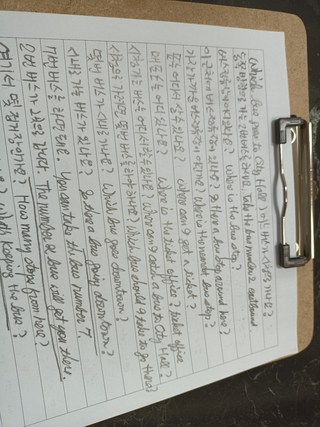 Which bus goes to City Hall? 어느 버스가 시청에 가나요?
동쪽 방향으로 가는 2번 버스를 타세요. Take the bus number 2 eastbound
버스 정류장이 어디 있나요? Where is the bus stop?
이 근처에 버스 정류장이 있나요? Is there a bus stop around here?
가장 가까운 버스 정류장이 어디예요? Where is the nearest bus stop?
표는 어디서 살 수 있나요? Where can I get a ticket?
매표소는 어디 있나요? Where is the ticket office? ticket office
시청가는 버스 어디서 탈 수 있나요? Where can I catch a bus to City Hall?
시청으로 가려면 몇번 버스를 타야 하나요? Which bus should I take to go there?
몇번 버스가 시내로 가나요? Which bus goes downtown?
시내로 가는 버스가 있나요? Is there a bus going downtown?
7번 버스를 타면 돼요. You can take the bus number 7.
2번 버스가 거기로 갑니다. The number 2 bus will get you there.
여기서 몇 정거장이에요? How many stops from here?
the bus?